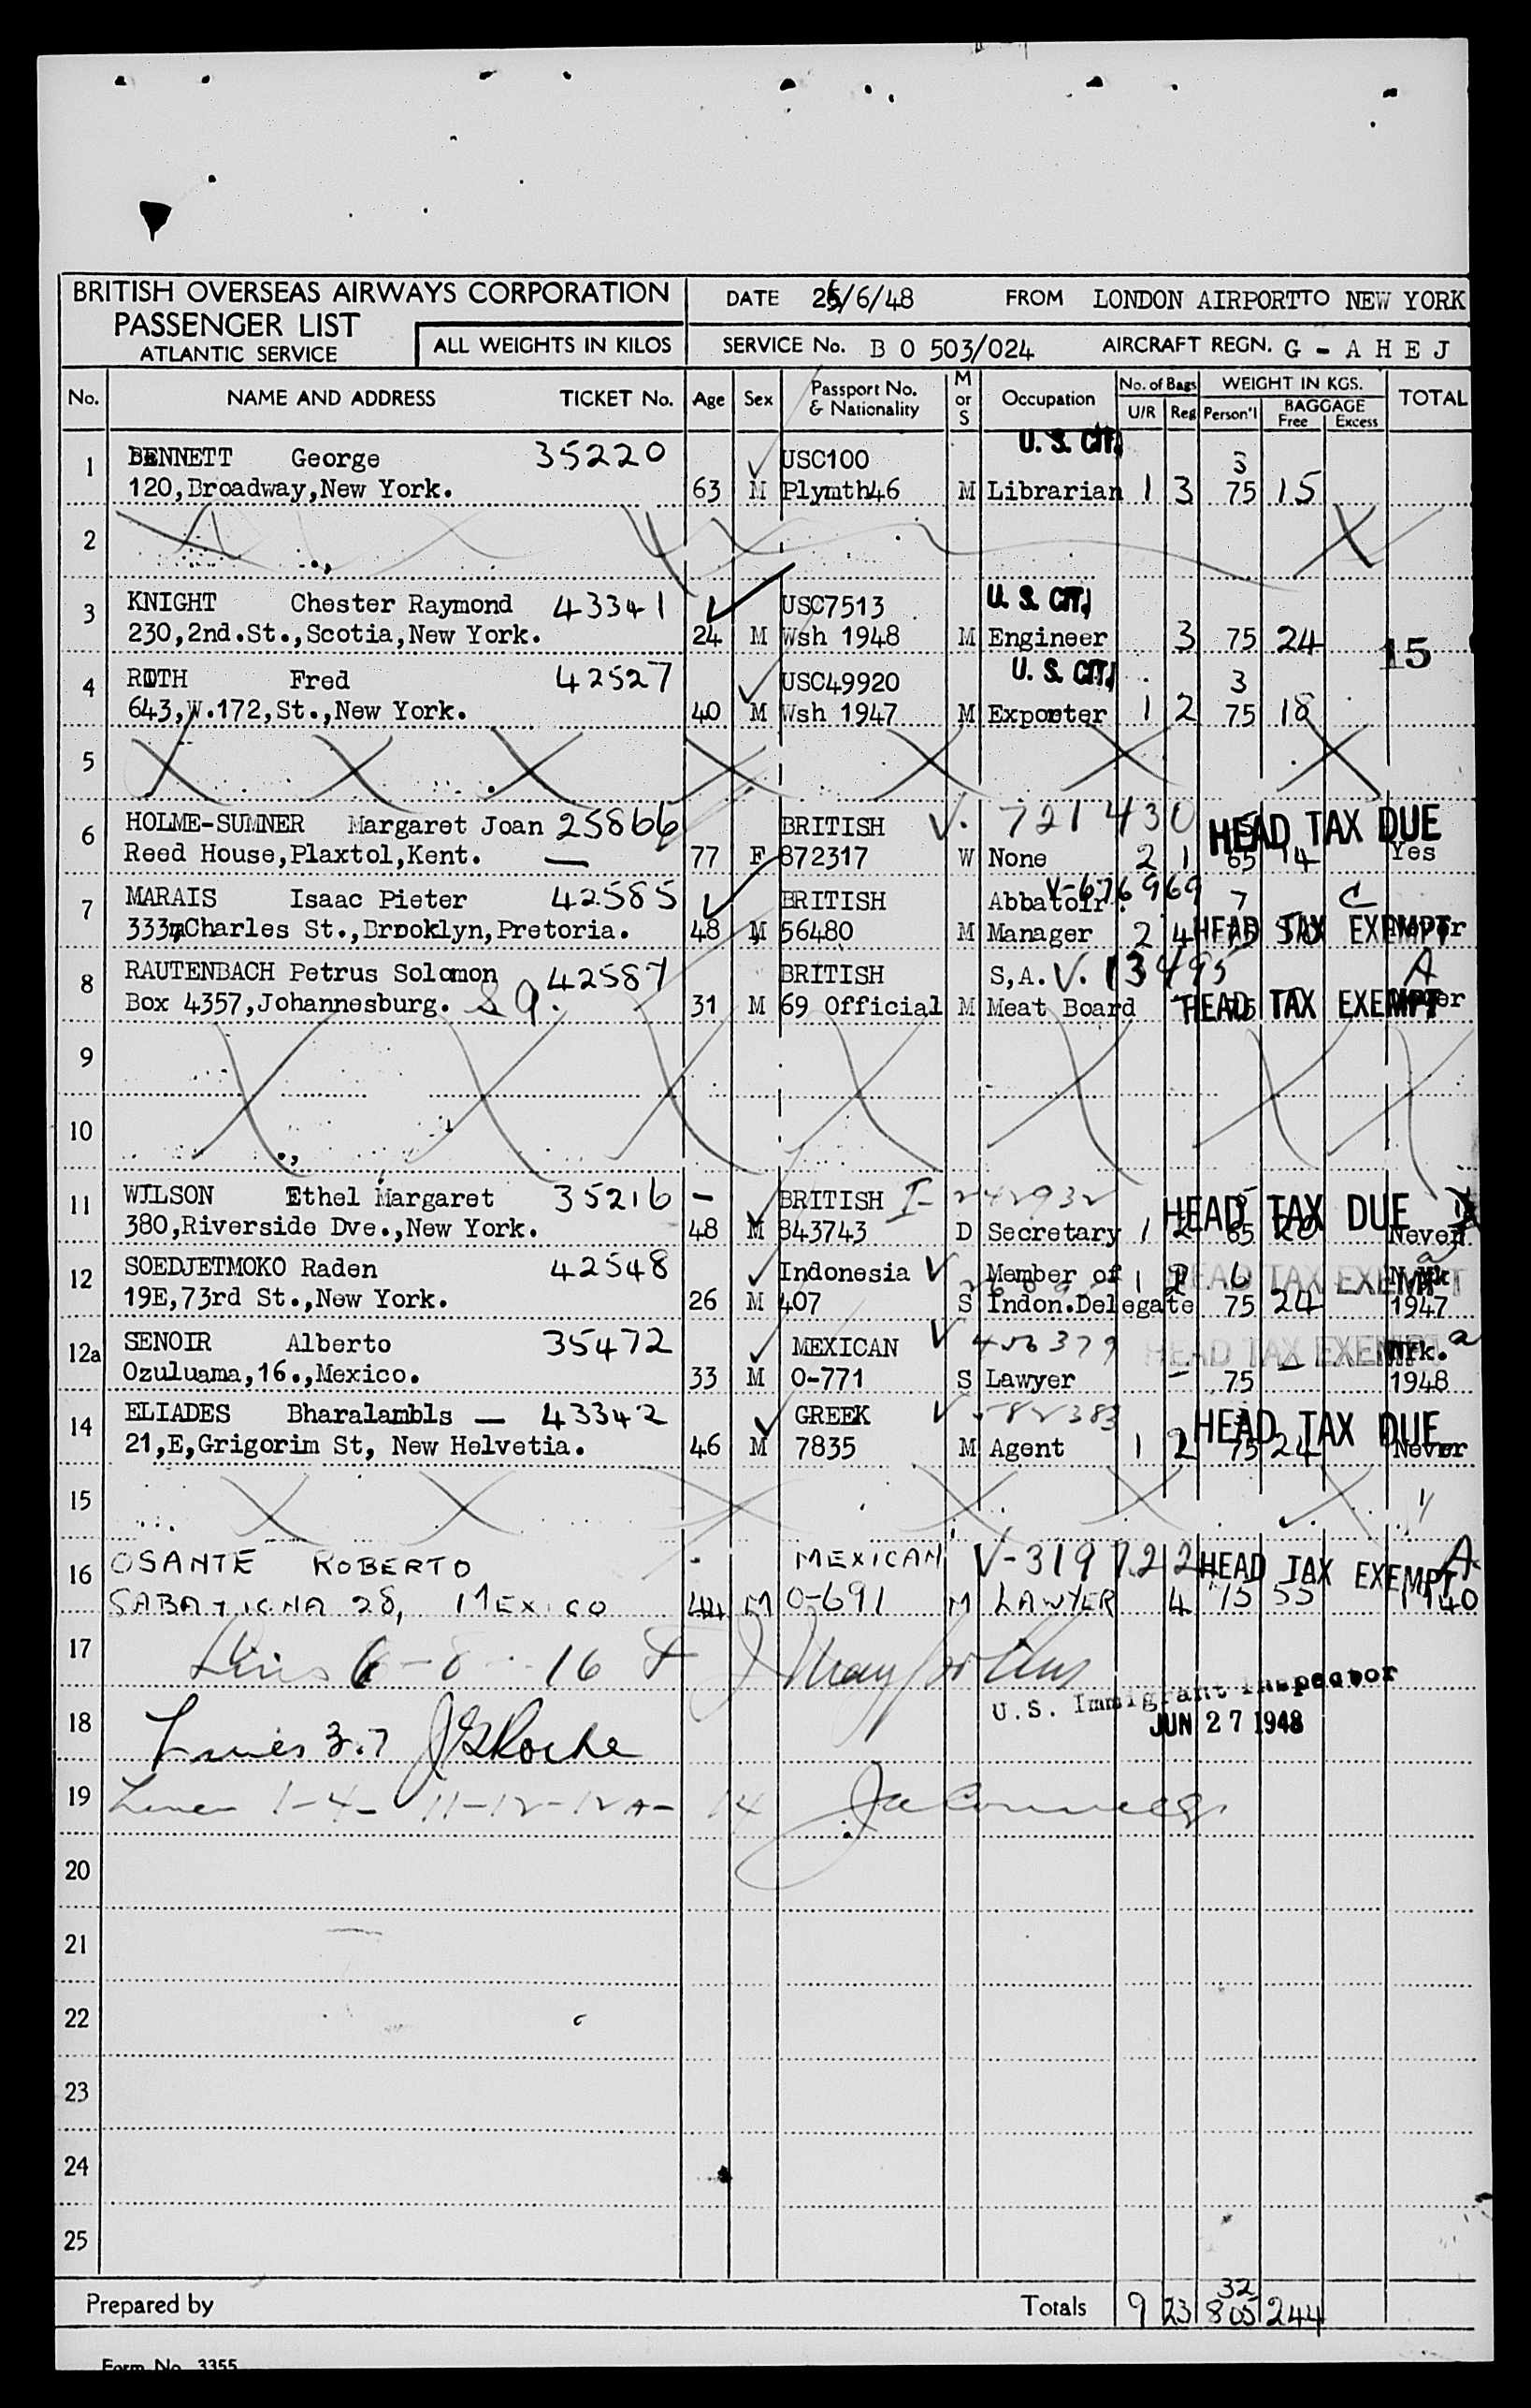 BRITISH OVERSEAS AIRWAYS CORPORATION
PASSENGER LIST
ATLANTIC SERVICE
ALL WEIGHTS IN KILOS
DATE 26/6/48 FROM LONDON AIRPORT TO NEW YORK
SERVICE No. B O 503/024 AIRCRAFT REGN. G - A H E J
No. NAME AND ADDRESS TICKET No. Age Sex Passport No. & Nationality M or S Occupation No. of Bags U/R Reg WEIGHT IN KGS. Person'l BAGGAGE Free Excess TOTAL
U. S. CIT.
1 BENNETT George 35220 USC100 3
120,Broadway,New York. 63 M Plymth46 M Librarian 1 3 75 15
2
U. S. CIT.
3 KNIGHT Chester Raymond 43341 USC7513
230,2nd.St.,Scotia,New York. 24 M Wsh 1948 M Engineer 3 75 24 15
U. S. CIT.
4 ROTH Fred 42527 USC49920 3
643,W.172,St.,New York. 40 M Wsh 1947 M Exporter 1 2 75 18
5
6 HOLME-SUMNER Margaret Joan 25866 BRITISH V. 721430 HEAD TAX DUE
Reed House,Plaxtol,Kent. 77 F 872317 W None 2 1 65 14 Yes
7 MARAIS Isaac Pieter 42585 BRITISH Abbatoir V-676969 7 C
333,Charles St.,Brooklyn,Pretoria. 48 M 56480 M Manager 2 4 75 HEAD TAX EXEMPT Never
8 RAUTENBACH Petrus Solomon 42587 BRITISH S,A. V. 13495 A
Box 4357,Johannesburg. 31 M 69 Official M Meat Board 75 HEAD TAX EXEMPT Never
9
10
11 WILSON Ethel Margaret 35216 BRITISH I-242932 HEAD TAX DUE
380,Riverside Dve.,New York. 48 M 843743 D Secretary 1 2 65 20 Never
12 SOEDJETMOKO Raden 42548 Indonesia V Member of 1 2 6 HEAD TAX EXEMPT a
19E,73rd St.,New York. 26 M 407 S Indon.Delegate 75 24 1947
12a SENOIR Alberto 35472 MEXICAN V 456379 HEAD TAX EXEMPT a
Ozuluama,16.,Mexico. 33 M O-771 S Lawyer - 75 - 1948
14 ELIADES Bharalambls 43342 GREEK V 582383 HEAD TAX DUE
21,E,Grigorim St, New Helvetia. 46 M 7835 M Agent 1 2 75 24 Never
15
16 OSANTE ROBERTO MEXICAN V-319722 HEAD TAX EXEMPT A
28, MEXICO 44 M O-691 M LAWYER 4 75 55 1940
17 Lines 6-8-16
U.S. Immigrant Inspector
18 Lines 3.7 JUN 27 1948
19 Lines 1-4-11-12-12A-14
20
21
22
23
24
25
32
Prepared by Totals 9 23 805 244
Form No. 3355